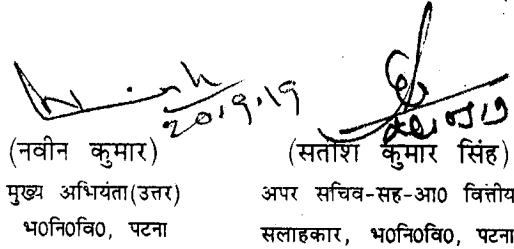 20.9.19
(नवीन कुमार)
मुख्य अभियंता(उत्तर)
भ0नि0वि0, पटना
(सतीश कुमार सिंह)
अपर सचिव-सह-आ0 वित्तीय
सलाहकार, भ0नि0वि0, पटना